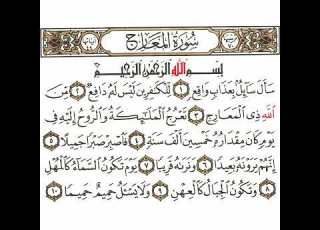 سُورَةُ المَعَارِجِ
بِسْمِ اللَّهِ الرَّحْمَٰنِ الرَّحِيمِ
سَأَلَ سَائِلٌ بِعَذَابٍ وَاقِعٍ ١ لِلْكَافِرِينَ لَيْسَ لَهُ دَافِعٌ ٢ مِنَ
اللَّهِ ذِي الْمَعَارِجِ ٣ تَعْرُجُ الْمَلَائِكَةُ وَالرُّوحُ إِلَيْهِ فِي
يَوْمٍ كَانَ مِقْدَارُهُ خَمْسِينَ أَلْفَ سَنَةٍ ٤ فَاصْبِرْ صَبْرًا جَمِيلًا ٥
إِنَّهُمْ يَرَوْنَهُ بَعِيدًا ٦ وَنَرَاهُ قَرِيبًا ٧ يَوْمَ تَكُونُ السَّمَاءُ كَالْمُهْلِ
٨ وَتَكُونُ الْجِبَالُ كَالْعِهْنِ ٩ وَلَا يَسْأَلُ حَمِيمٌ حَمِيمًا ١٠